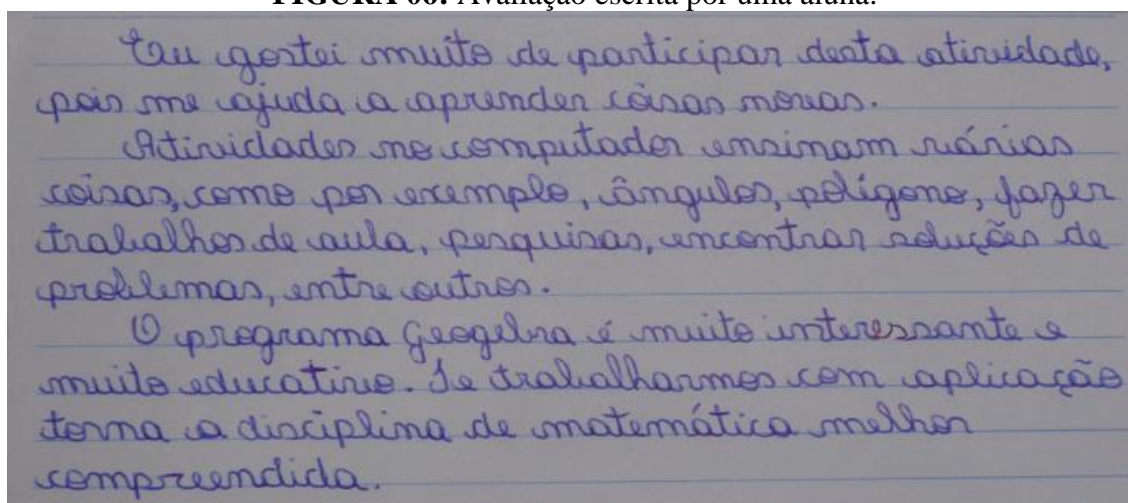 FIGURA 06: Avaliação escrita por uma aluna.
Eu gostei muito de participar desta atividade,
pois me ajuda a aprender coisas novas.
Atividades no computador ensinam várias
coisas, como por exemplo, ângulos, polígono, fazer
trabalhos de aula, pesquisas, encontrar soluções de
problemas, entre outros.
O programa Geogebra é muito interessante e
muito educativo. Se trabalharmos com aplicação
torna a disciplina de matemática melhor
compreendida.